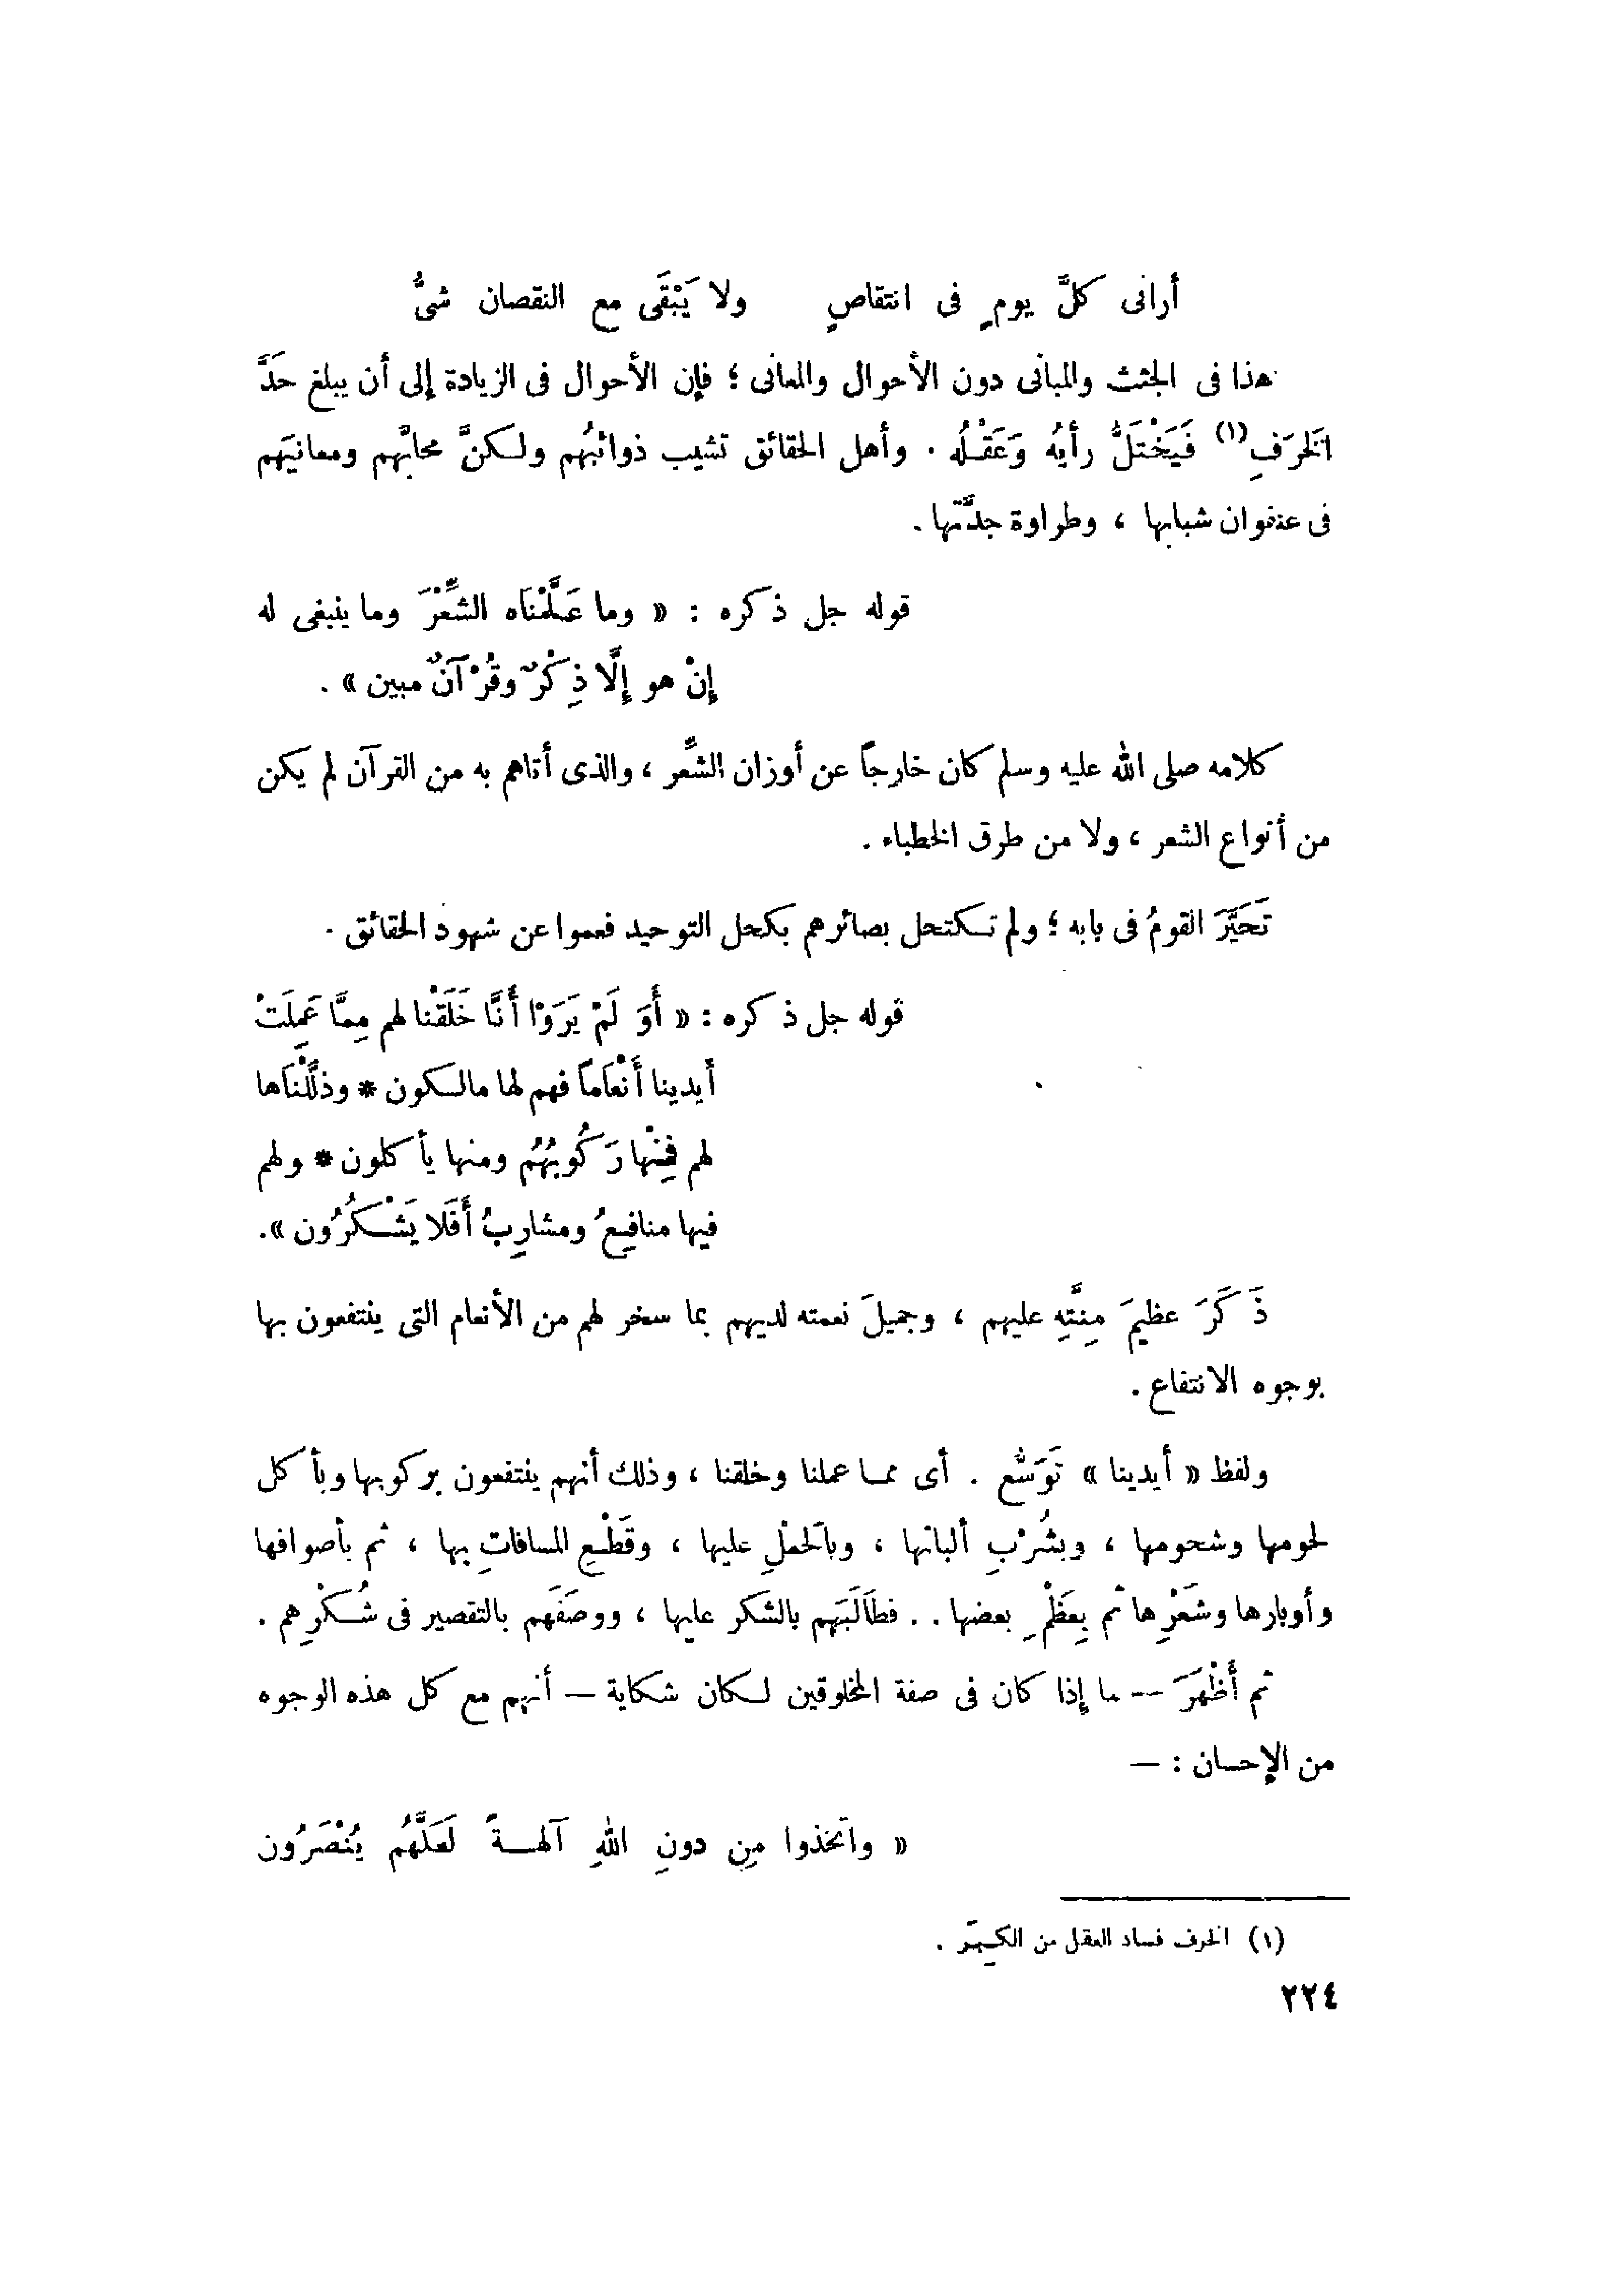 أرانى كلَّ يومٍ فى انتقاصٍ ولا يَبْقَى مع النقصان شىُّ
هذا فى الجثث والمبانى دون الأحوال والمعانى ؛ فإن الأحوال فى الزيادة إلى أن يبلغ حَدَّ
الَخرَفِ (١) فَيَخْتَلُّ رأيُه وَعَقْلُه . وأهل الحقائق تشيب ذوائبُهم ولكنَّ محابَّهم ومعانيَهم
فى عنفوان شبابها ، وطراوة جدَّتها .
قوله جل ذكره : « وما عَلَّمْنَاه الشِّعْرَ وما ينبغى له
إنْ هو إلَّا ذِكْرٌ وقُرْآنٌ مبين » .
كلامه صلى الله عليه وسلم كان خارجاً عن أوزان الشِّعر ، والذى أتاهم به من القرآن لم يكن
من أنواع الشعر ، ولا من طرق الخطباء .
تَحَيَّرَ القومُ فى بابه ؛ ولم تكتحل بصائرهم بكحل التوحيد فعموا عن شهود الحقائق .
قوله جل ذكره : « أَوَ لَمْ يَرَوْا أَنَّا خَلَقْنا لهم مِمَّا عَمِلَتْ
أيدينا أَنْعَاماً فهم لها مالكون * وذلَّلْنَاها
لهم فمِنْها رَكُوبُهُم ومنها يأكلون * ولهم
فيها منافِعُ ومشارِبُ أَفَلا يَشْكُرُون ».
ذَكَرَ عظيمَ مِنَّتِه عليهم ، وجميلَ نعمته لديهم بما سخر لهم من الأنعام التى ينتفعون بها
بوجوه الانتفاع .
ولفظ « أيدينا » تَوَسُّع . أى مما عملنا وخلقنا ، وذلك أنهم ينتفعون بركوبها وبأكل
لحومها وشحومها ، وبشُرْبِ ألبانها ، وبالَحملِ عليها ، وقَطْعِ المسافاتِ بها ، ثم بأصوافها
وأوبارها وشَعْرِها ثم بِعَظْمِ بعضها .. فطَالَبَهم بالشكر عليها ، ووصَفَهم بالتقصير فى شُكْرِهم .
ثم أَظْهَرَ -- ما إذا كان فى صفة المخلوقين لكان شكاية — أنهم مع كل هذه الوجوه
من الإحسان : —
« واتخذوا مِن دونِ اللهِ آلهةً لَعَلَّهُم يُنْصَرُون
(١) الخرف فساد العقل من الكِبَر .
٢٢٤